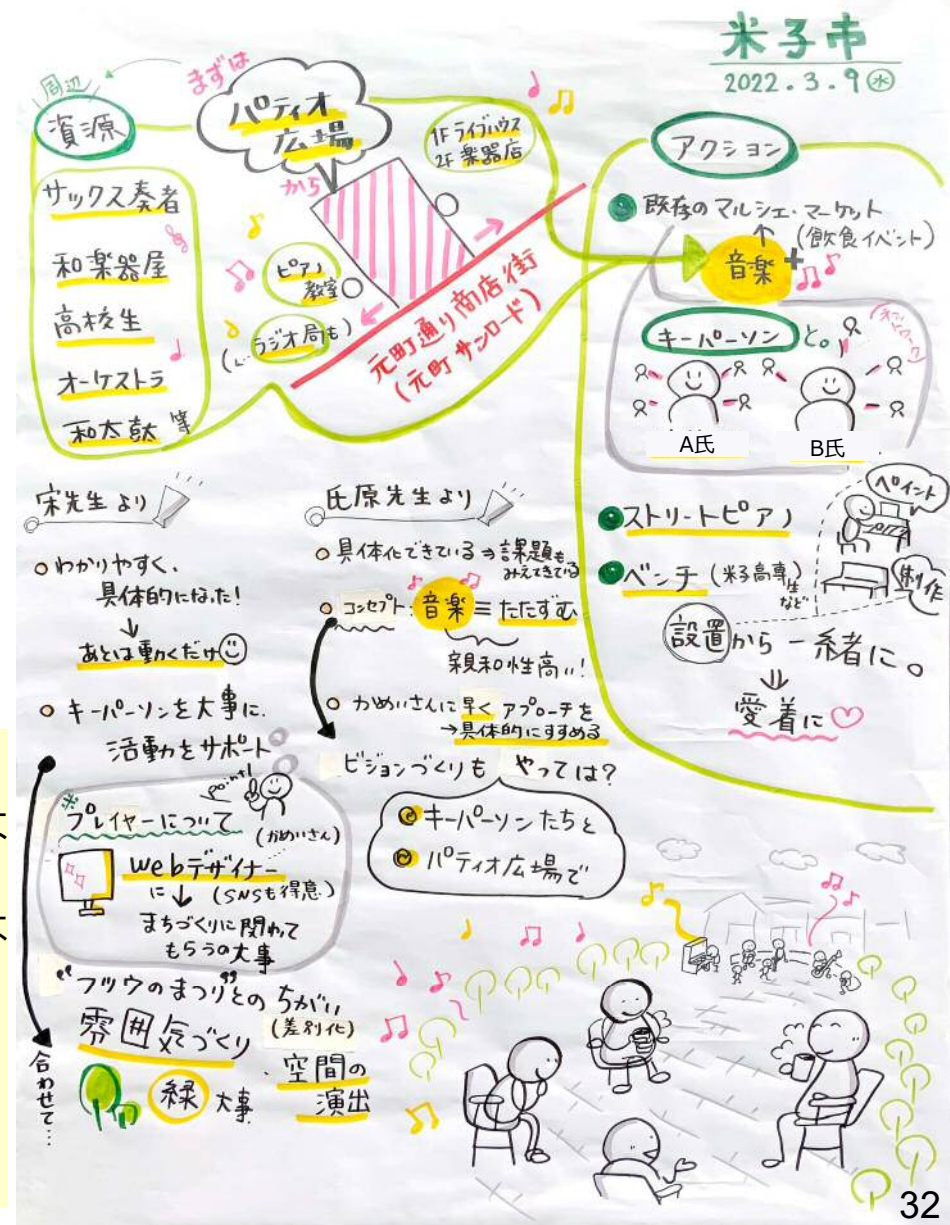 米子市
2022.3.9㊌
周辺
資源
サックス奏者
和楽器屋
高校生
オーケストラ
和太鼓 等
まずは
パティオ
広場
から
1F ライブハウス
2F 楽器店
ピアノ
教室
ラジオ局も)
元町通り商店街
(元町サンロード)
アクション
既存のマルシェ・マーケット
(飲食イベント)
音楽+
キーパーソンと。
A氏
B氏
ストリートピアノ
ペイント
ベンチ(米子高専生
など!
制作
設置から一緒に。
⇓
愛着に♡
宋先生より
○わかりやすく、
具体的になった!
↓
あとは動くだけ☺
○キーパーソンを大事に、
活動をサポート
point!
※プレイヤーについて
(かめいさん)
webデザイナー
に↓(SNSも得意)
まちづくりに関わって
もらうの大事
“フツウのまつり”とのちがい
(差別化)
雰囲気づくり
・空間の
演出
緑 大事
合わせて…
氏原先生より
○具体化できている⇒課題も
みえてきている
○コンセプト・音楽≡たたずむ
親和性高い!
○かめいさんに早くアプローチを
→具体的にすすめる
ビジョンづくりも やっては?
キーパーソンたちと
パティオ広場で
32